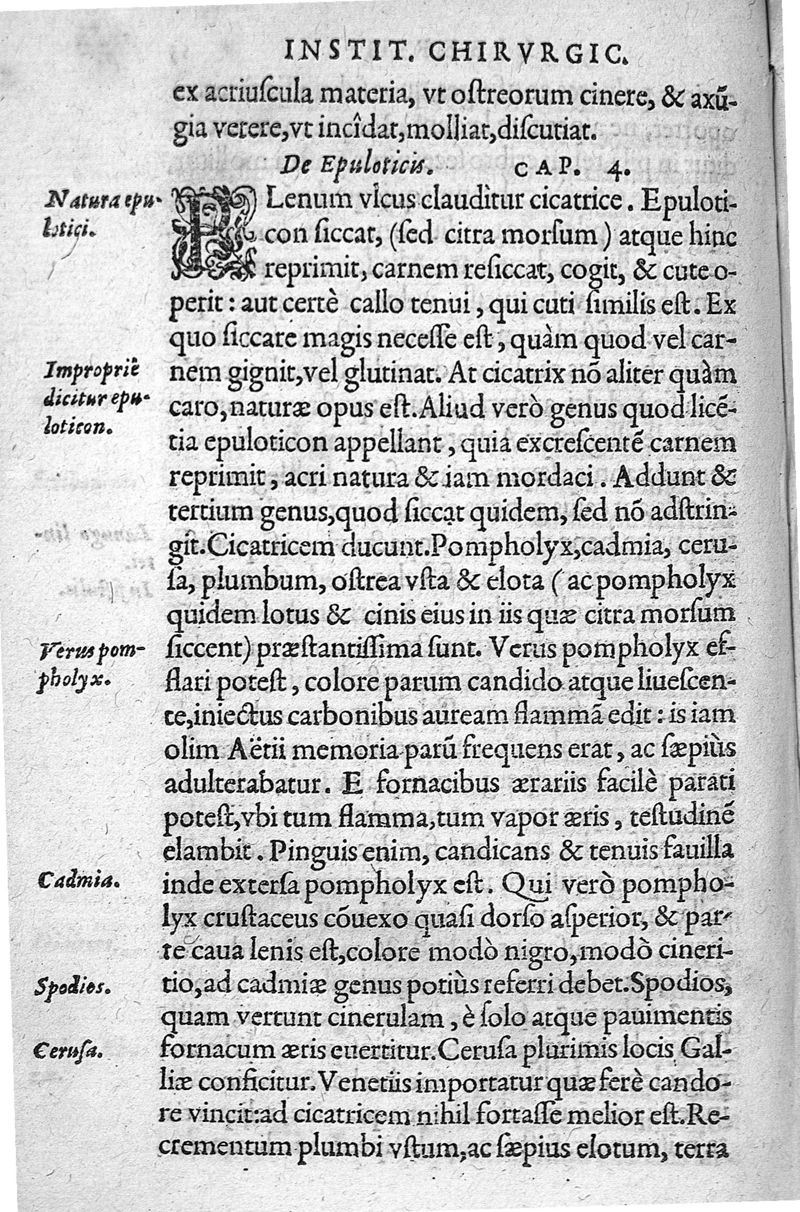 INSTIT. CHIRVRGIC.
ex acriuſcula materia, vt oſtreorum cinere, & axū-
gia vetere,vt incîdat,molliat,diſcutiat.
De Epuloticis. CAP. 4.
Natura epu-
lotici.
PLenum vlcus clauditur cicatrice. Epuloti-
con ſiccat, (ſed citra morſum) atque hinc
reprimit, carnem reſiccat, cogit, & cute o-
perit: aut certè callo tenui, qui cuti ſimilis eſt. Ex
quo ſiccare magis neceſſe eſt, quàm quod vel car-
Impropriè
dicitur epu-
loticon.
nem gignit,vel glutinat. At cicatrix nō aliter quàm
caro,naturæ opus eſt.Aliud verò genus quod licē-
tia epuloticon appellant, quia excreſcentē carnem
reprimit, acri natura & iam mordaci. Addunt &
tertium genus,quod ſiccat quidem, ſed nō adſtrin-
git.Cicatricem ducunt.Pompholyx,cadmia, ceru-
ſa, plumbum, oſtrea vſta & elota (ac pompholyx
quidem lotus & cinis eius in iis quæ citra morſum
Verus pom-
pholyx.
ſiccent) præſtantiſſima ſunt. Verus pompholyx ef-
flari poteſt, colore parum candido atque liueſcen-
te,iniectus carbonibus auream flammā edit: is iam
olim Aëtii memoria parū frequens erat, ac ſæpiùs
adulterabatur. E fornacibus ærariis facilè parati
poteſt,vbi tum flamma,tum vapor æris, teſtudinē
elambit. Pinguis enim, candicans & tenuis fauilla
Cadmia.
inde exterſa pompholyx eſt. Qui verò pompho-
lyx cruſtaceus cōuexo quaſi dorſo aſperior, & par-
te caua lenis eſt,colore modò nigro,modò cineri-
Spodios.
tio,ad cadmiæ genus potiùs referri debet.Spodios,
quam vertunt cinerulam, è ſolo atque pauimentis
Ceruſa.
fornacum æris euertitur.Ceruſa plurimis locis Gal-
liæ conficitur.Venetiis importatur quæ ferè cando-
re vincit:ad cicatricem nihil fortaſſe melior eſt.Re-
crementum plumbi vſtum,ac ſæpius elotum, terra